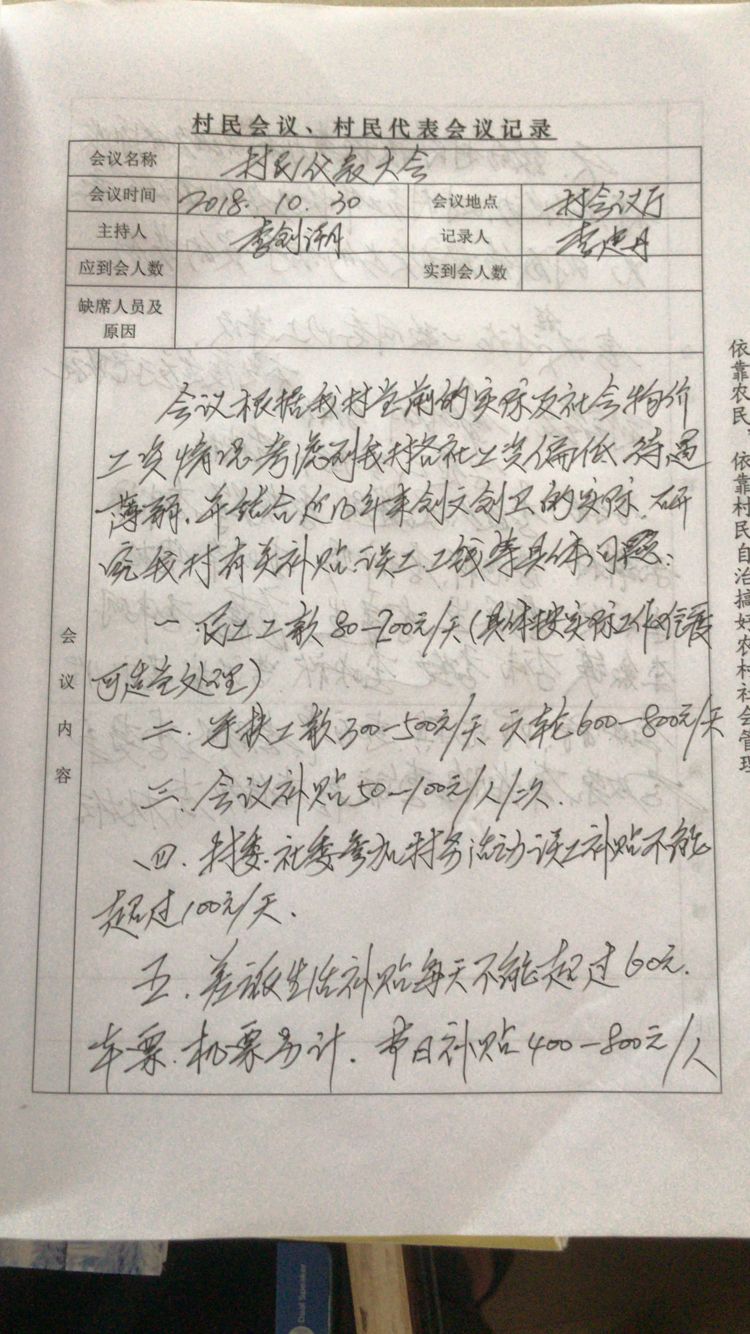 村民会议、村民代表会议记录
会议名称 村民代表大会
会议时间 2018.10.30 会议地点 村会议厅
主持人 李剑 记录人 李忠丹
应到会人数 实到会人数
缺席人员及
原因
会议内容
会议根据我村当前的实际及社会物价
工资情况考虑到我村各社工资偏低、待遇
薄弱、并结合近几年来创文创卫的实际、研
究我村有关补贴、误工、工钱等具体问题:
一、民工工款80—200元/天(具体按实际工作
可适当处理)
二、手扶工款300—500元/天、六轮600—800元/天
三、会议补贴50—100元/人/次.
四、村委、社委参加村务活动误工补贴不能
超过100元/天.
五、差旅生活补贴每天不能超过60元.
车票、机票另计. 节日补贴400—800元/人
依靠农民、依靠村民自治搞好农村社会管理
Dual Speaker